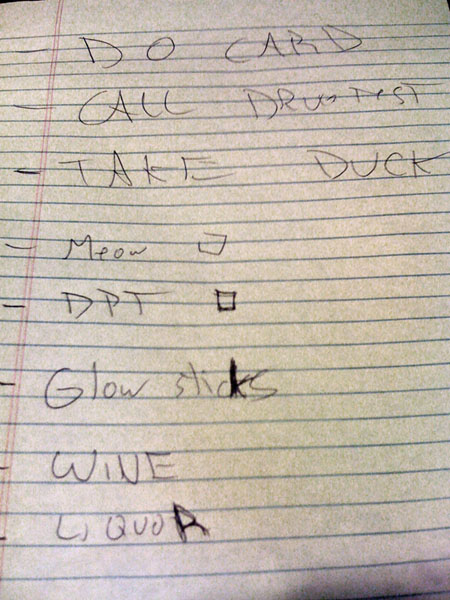 - DO CARD
- CALL DRUGTEST
- TAKE DUCK
- Meow
- DPT
- Glow sticks
- WINE
- LIQUOR